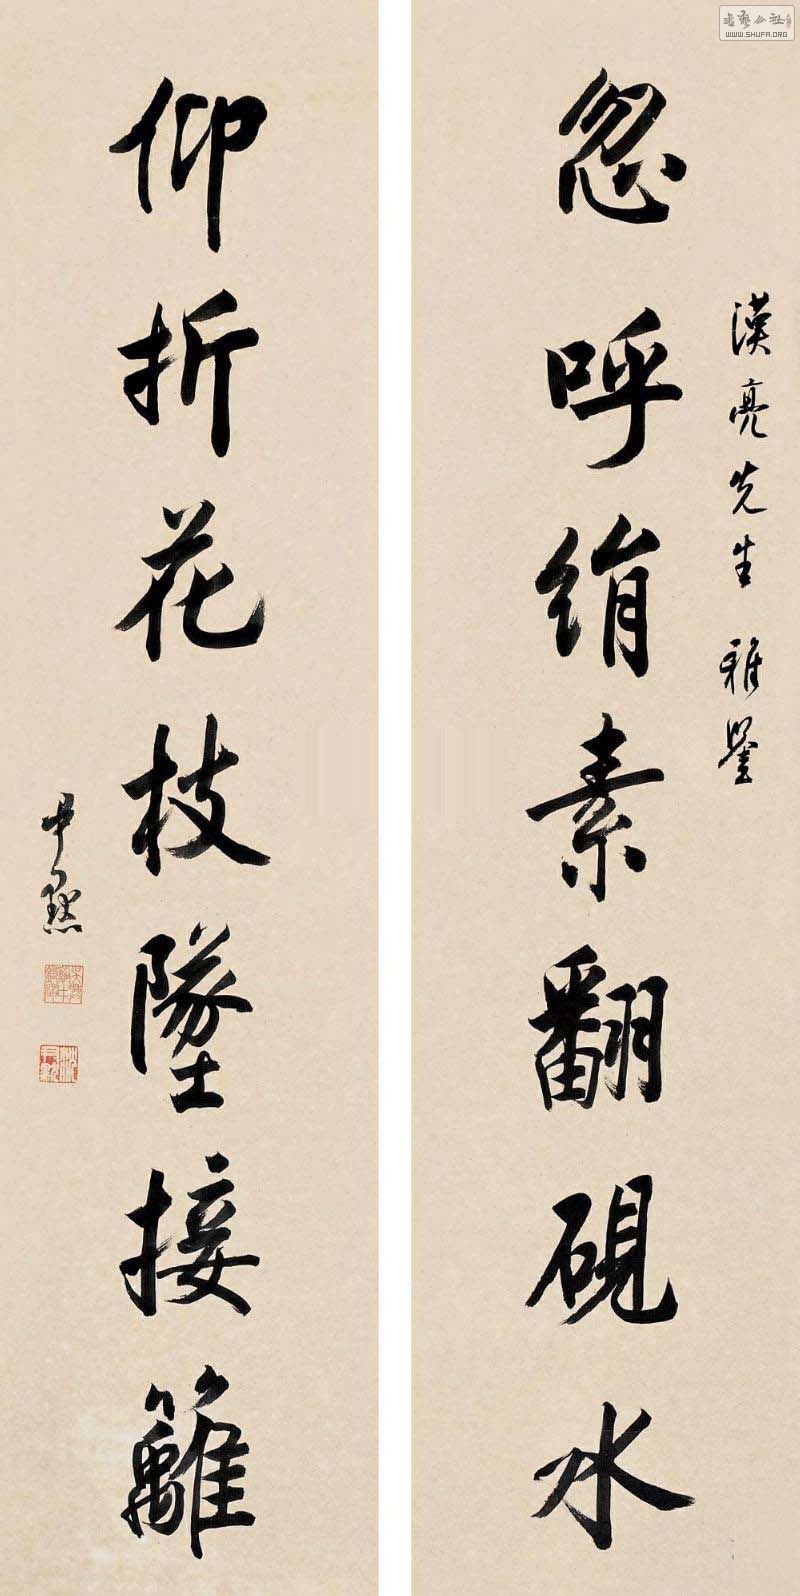 書藝公社
WWW.SHUFA.ORG
漢亮先生雅鑒
忽呼絹素翻硯水
仰折花枝墜接䍦
尹默